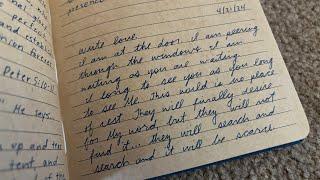 presence
4/21/24
write love.
I am at the door I am peering
through the windows. I am
waiting as you are waiting
I long to see you as you long
to see Me. This world is no place
of rest. They will finally desire
for My word but they will not
find it... they will search and
search and it will be scarce
nal
and es
Peter 5:10-11
He says,
up and
tent, and
of the